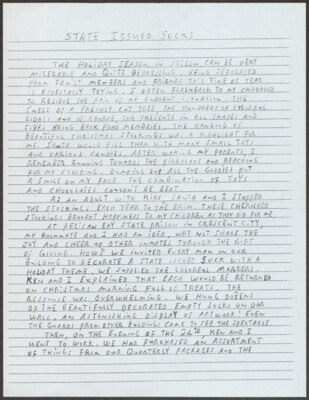 STATE ISSUED SOCKS
THE HOLIDAY SEASON IN PRISON CAN BE VERY
MISERABLE AND QUITE DEPRESSING. BEING SEPARATED
FROM FAMILY MEMBERS AND FRIENDS THIS TIME OF YEAR
IS ESPECIALLY TRYING. I OFTEN FLASHBACK TO MY CHILDHOOD
TO RELIEVE THE PAIN OF MY CURRENT SITUATION. THE
SMELL OF A FRESHLY CUT TREE THE HUNDREDS OF COLORFUL
LIGHTS AND OF COURSE THE PRESENTS IN ALL SHAPES AND
SIZES BRING BACK FOND MEMORIES. THE HANGING OF
BEAUTIFUL CHRISTMAS STOCKINGS WAS A HIGHLIGHT FOR
ME. SANTA WOULD FILL THEM WITH MANY SMALL TOYS
AND VARIOUS CANDIES. AFTER WAKING MY PARENTS, I
REMEMBER RUNNING TOWARDS THE FIREPLACE AND REACHING
FOR MY STOCKING. DUMPING OUT ALL THE GOODIES PUT
A SMILE ON MY FACE. THE COMBINATION OF TOYS
AND CHOCOLATES COULDN'T BE BEAT.
AS AN ADULT WITH KIDS SANTA AND I STUFFED
THE STOCKINGS EACH YEAR TO THE BRIM. THESE CHERISHED
STOCKINGS BROUGHT HAPPINESS TO MY CHILDREN AS THEY DID FOR ME.
AT PELICAN BAY STATE PRISON IN CRESCENT CITY,
MY ROOMMATE AND I HAD AN IDEA. WHY NOT SHARE THE
JOY AND CHEER OF OTHER INMATES THROUGH THE GIFT
OF GIVING. HOW? WE INVITED EVERY MAN IN OUR
BUILDING TO DECORATE A STATE ISSUED SOCK WITH A
HOLIDAY THEME. WE SUPPLIED THE COLORFUL MARKERS.
KEN AND I EXPLAINED THAT EACH WOULD BE RETURNED
ON CHRISTMAS MORNING FULL OF TREATS. THE
RESPONSE WAS OVERWHELMING. WE HUNG DOZENS
OF THE BEAUTIFULLY DECORATED EMPTY SOCKS ON OUR
WALL, AN ASTONISHING DISPLAY OF ARTWORK! EVEN
THE GUARDS FROM OTHER BUILDINGS CAME TO SEE THE SPECTACLE.
THEN, ON THE EVENING OF THE 24TH KEN AND I
WENT TO WORK. WE HAD PURCHASED AN ASSORTMENT
OF THINGS FROM OUR QUARTERLY PACKAGES AND THE